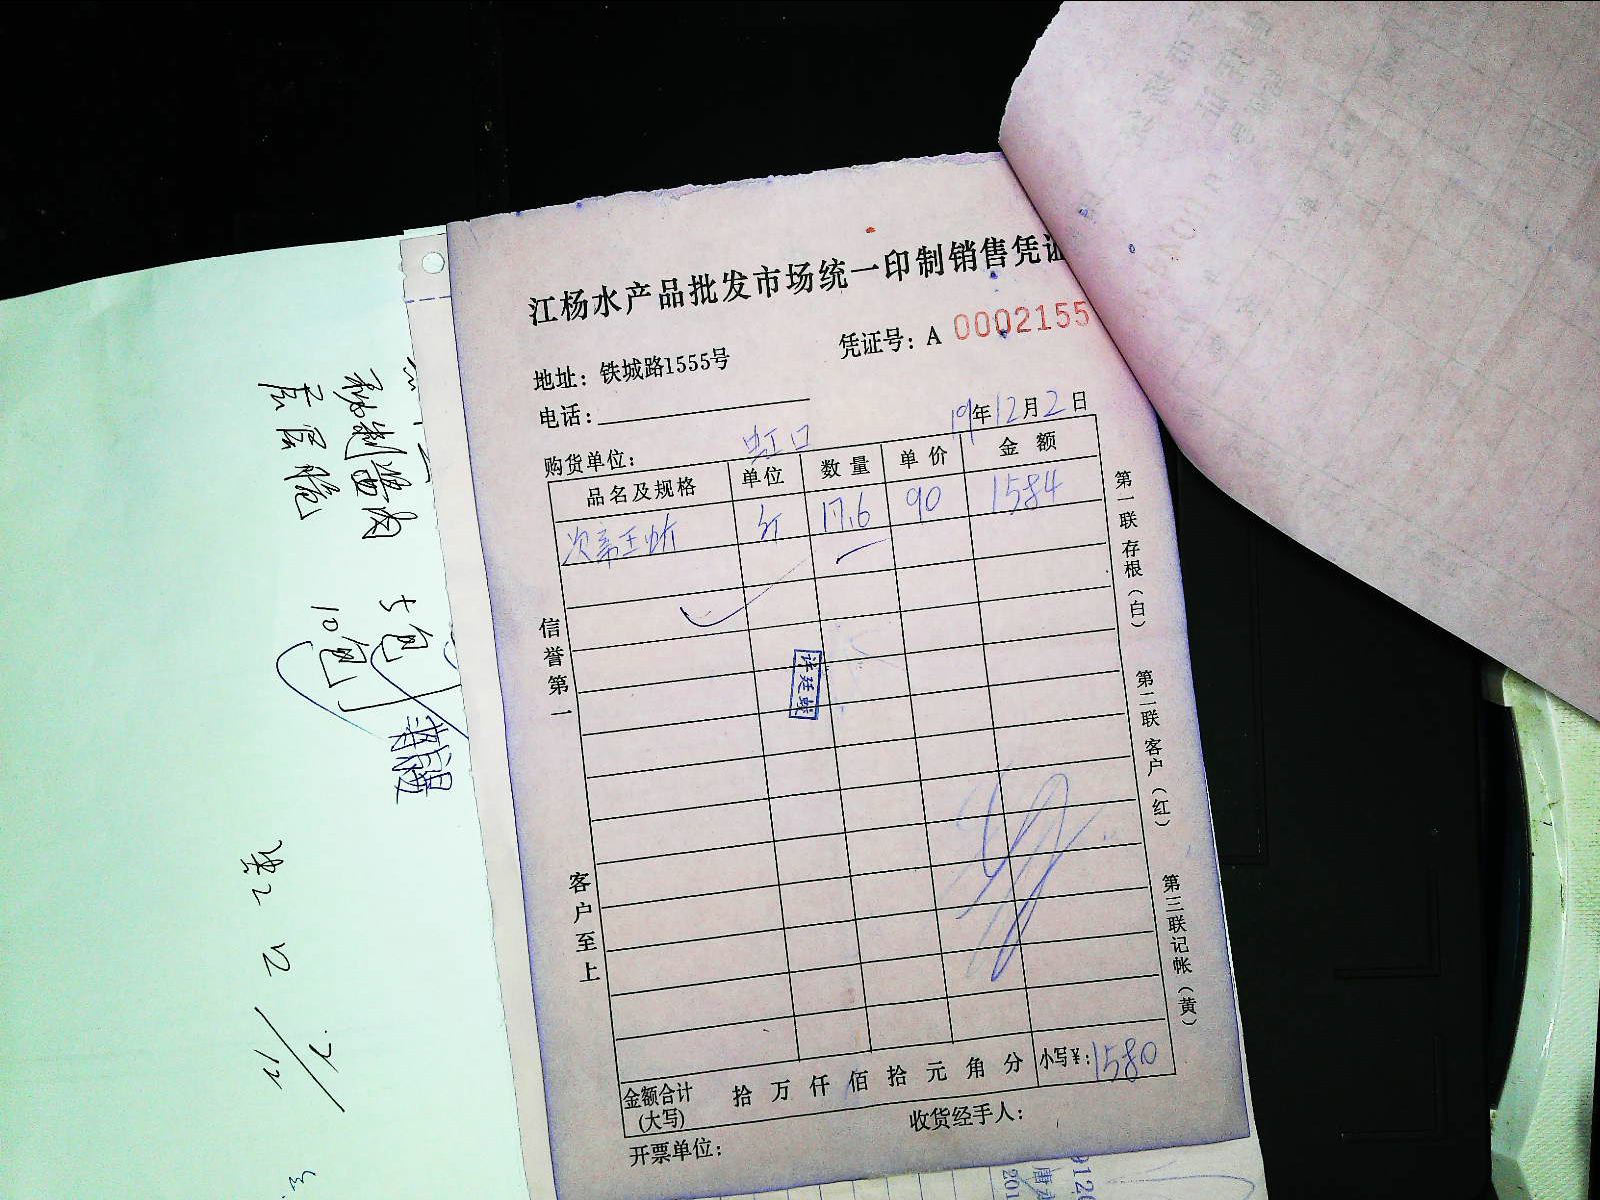 江杨水产品批发市场统一印制销售凭证
凭证号：A 0002155
地址：铁城路1555号
电话：
19年12月2日
购货单位： 虹口
品名及规格 单位 数量 单价 金额
斤 17.6 90 1584
信誉第一
客户至上
第一联 存根（白）
第二联 客户（红）
第三联 记帐（黄）
金额合计
(大写)
拾 万 仟 佰 拾 元 角 分
小写¥：1580
收货经手人：
开票单位：
5包
10包